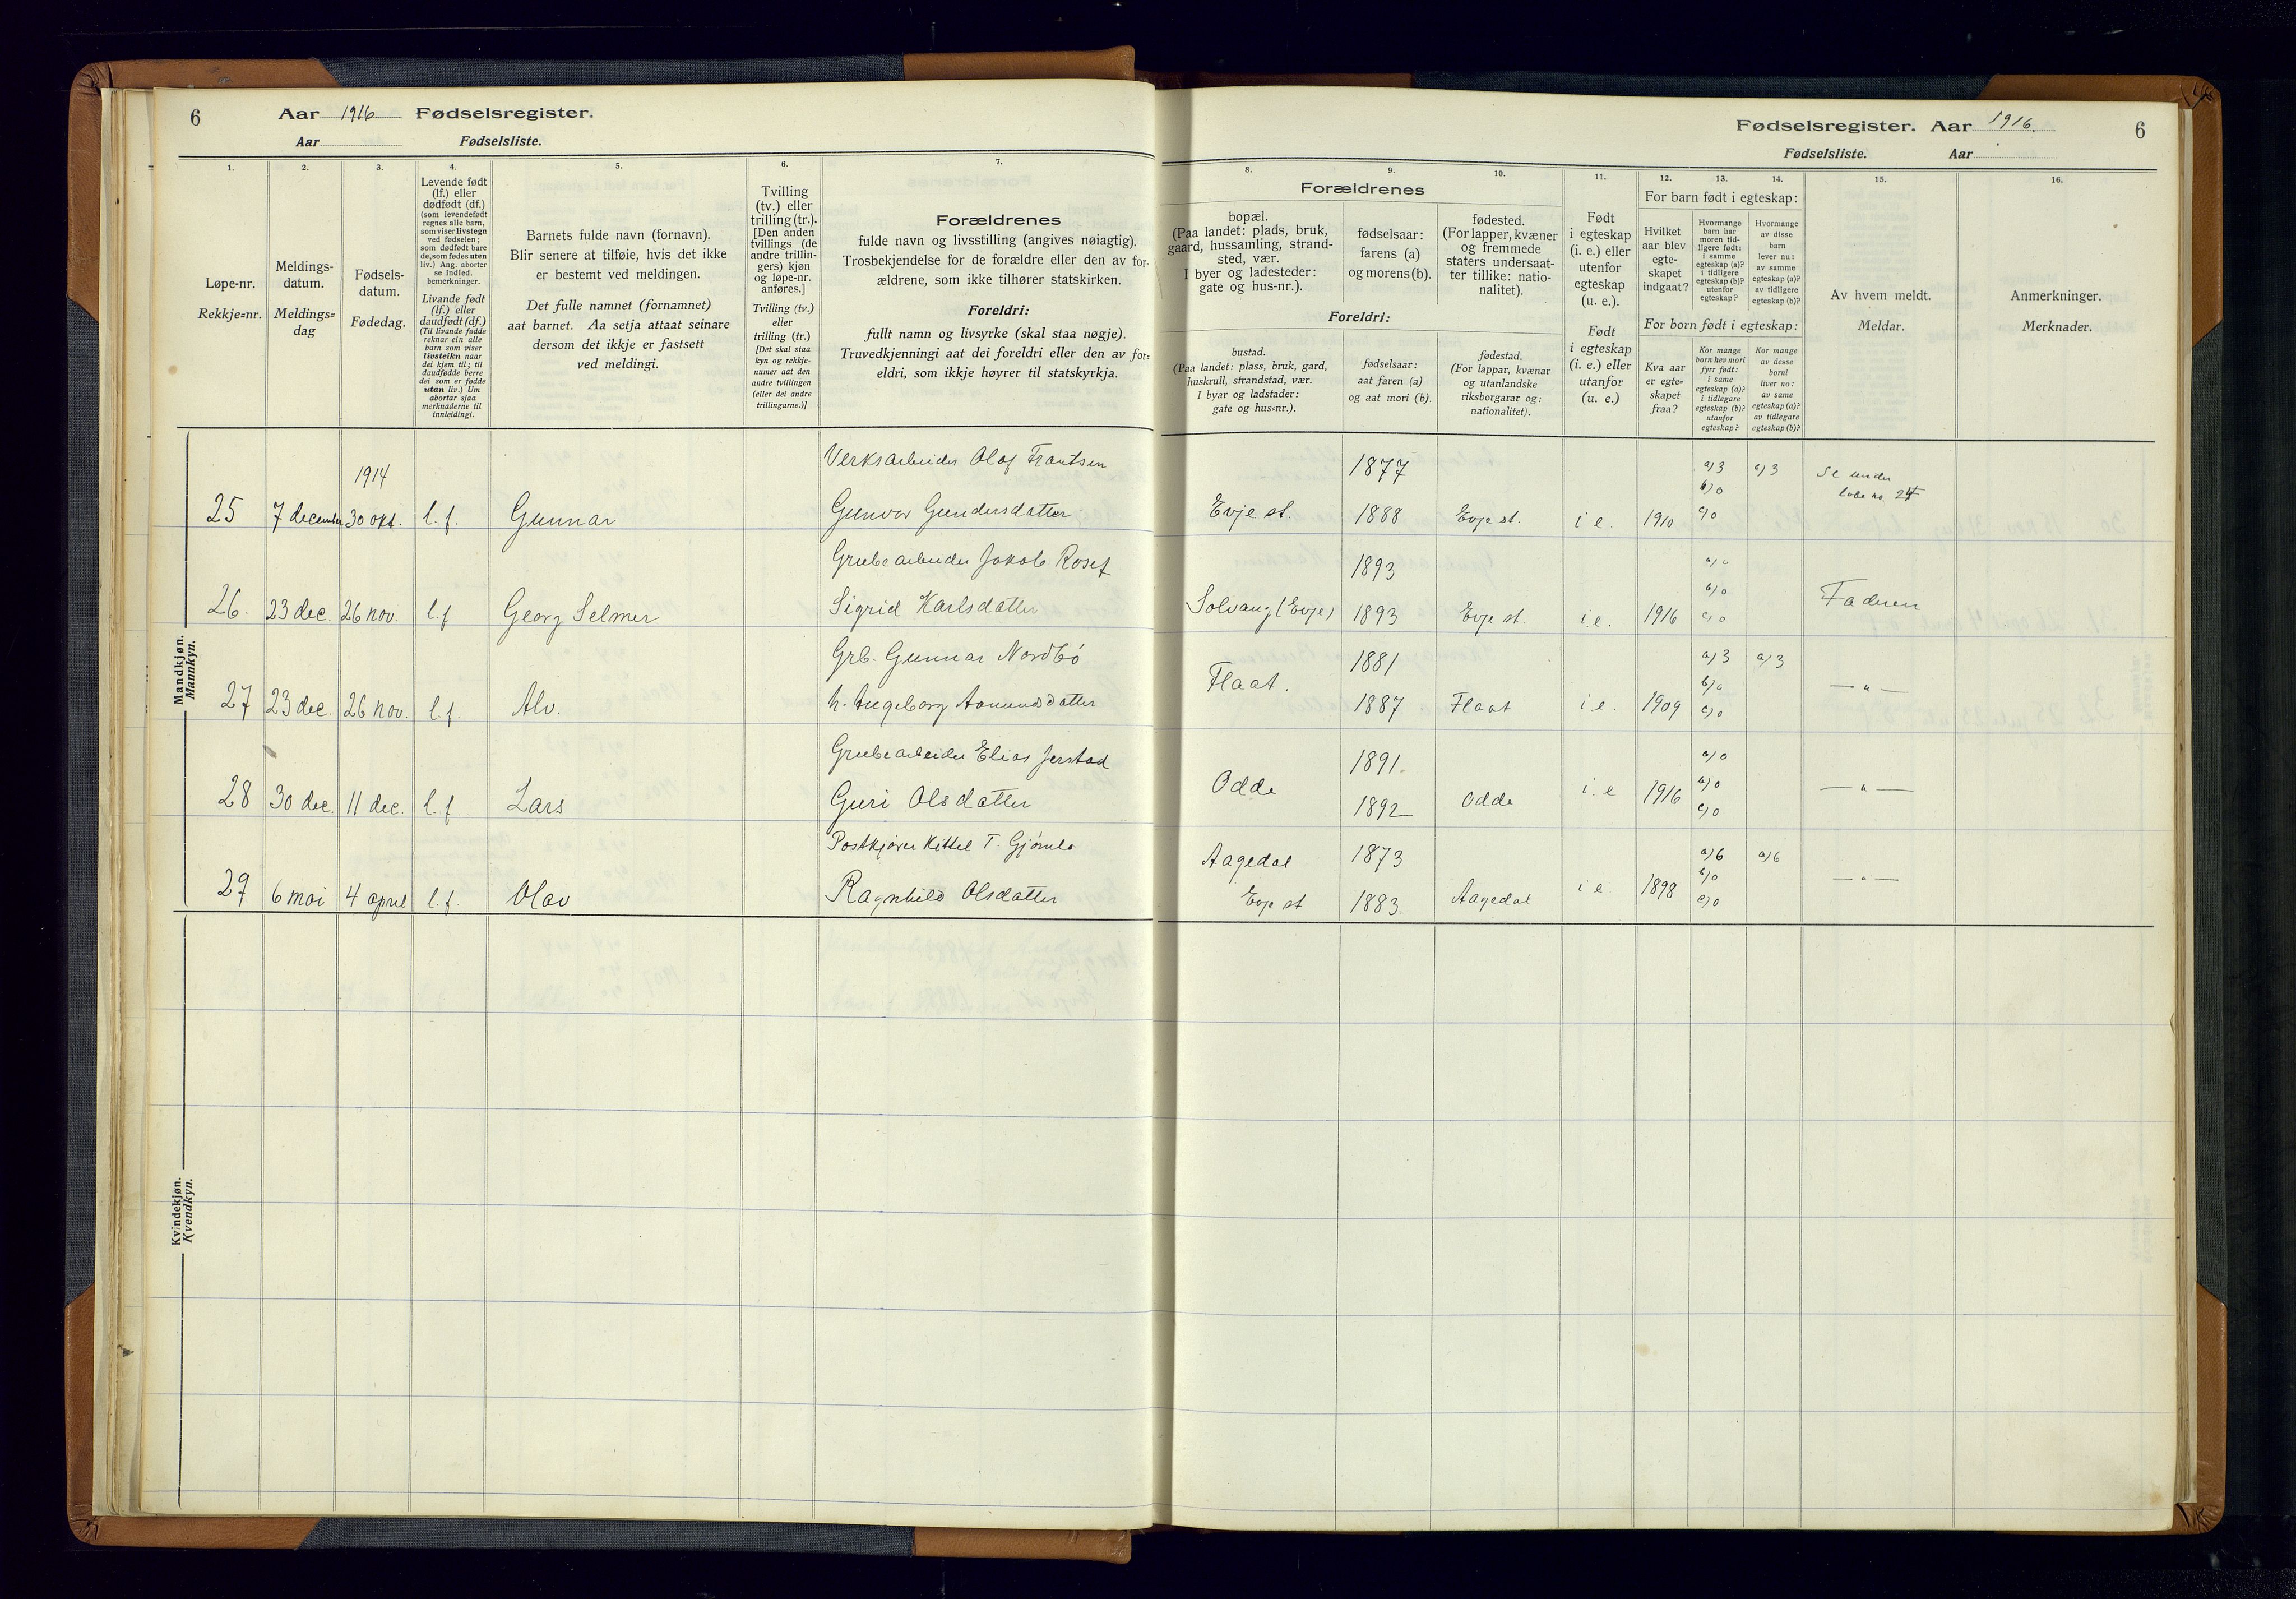 6 Aar 1916 Fødselsregister.
Aar Fødselsliste.
1. 2. 3. 4. 5. 6. 7.
Løpe-nr.
Rekkje=nr.
Meldings-
datum.
Meldings=
dag
Fødsels-
datum.
Fødedag.
Levende født
(lf.) eller
dødfødt (df.)
(som levendefødt
regnes alle barn,
som viser livstegn
ved fødselen;
som dødfødt bare
de, som fødes uten
liv.) Ang. aborter
se indled.
bemerkninger.
Livande født
(lf.) eller
daudfødt (df.)
(Til livande fødde
reknar ein alle
barn som viser
livsteikn naar
dei kjem til; til
daudfødde berre
dei som er fødde
utan liv.) Um
abortar sjaa
merknaderne til
innleidingi.
Barnets fulde navn (fornavn).
Blir senere at tilføie, hvis det ikke
er bestemt ved meldingen.
Det fulle namnet (fornamnet)
aat barnet. Aa setja attaat seinare
dersom det ikkje er fastsett
ved meldingi.
Tvilling
(tv.) eller
trilling (tr.).
[Den anden
tvillings (de
andre trillin-
gers) kjøn
og løpe-nr.
anføres.]
Tvilling (tv.)
eller
trilling (tr.)
[Det skal staa
kyn og rekkje-
numer aat den
andre tvillingen
(eller dei andre
trillingarne.)]
Forældrenes
fulde navn og livsstilling (angives nøiagtig).
Trosbekjendelse for de forældre eller den av for-
ældrene, som ikke tilhører statskirken.
Foreldri:
fullt namn og livsyrke (skal staa nøgje).
Truvedkjenningi aat dei foreldri eller den av for=
eldri, som ikkje høyrer til statskyrkja.
Mandkjøn.
Mannkyn.
1914
Verksarbeider Olaf Frantsen
25 7 december 30 okt. l. f. Gunnar Gunvor Gundersdatter
Grubearbeider Jakob Rosef
26. 23 dec. 26 nov. l. f Georg Selmer Sigrid Karlsdatter
Grb. Gunnar Nordbö
27 23 dec. 26 nov. l. f. Alv. h. Ingeborg Aamundsdatter
Grubearbeider Elias Jerstad
28 30 dec. 11 dec. l. f Lars Guri Olsdatter
Postkjører Kittel T. Gjömle
29 6 mai 4 april l. f. Olav Ragnhild Olsdatter
Kvindekjøn.
Kvendkyn.
Fødselsregister. Aar 1916. 6
Fødselsliste. Aar
8. 9. 10. 11. 12. 13. 14. 15. 16.
Forældrenes
bopæl.
(Paa landet: plads, bruk,
gaard, hussamling, strand-
sted, vær.
I byer og ladesteder:
gate og hus-nr.).
fødselsaar:
farens (a)
og morens (b).
fødested.
(For lapper, kvæner
og fremmede
staters undersaat-
ter tillike: natio-
nalitet).
Foreldri:
bustad.
(Paa landet: plass, bruk, gard,
huskrull, strandstad, vær.
I byar og ladstader:
gate og hus=nr.).
fødselsaar:
aat faren (a)
og aat mori (b).
fødestad.
(For lappar, kvænar
og utanlandske
riksborgarar og:
nationalitet).
Født
i egteskap
(i. e.) eller
utenfor
egteskap
(u. e.).
Født
i egteskap
(i. e.) eller
utanfor
(u. e.)
For barn født i egteskap:
Hvilket
aar blev
egte-
skapet
indgaat?
Hvormange
barn har
moren tid-
ligere født:
i samme
egteskap (a)?
i tidligere
egteskap (b)?
utenfor
egteskap?
Hvormange
av disse
barn
lever nu:
av samme
egteskap (a)?
av tidligere
egteskap (b)?
For born født i egteskap:
Kva aar
er egte=
skapet
fraa?
Kor mange
born hev mori
fyrr født:
i same
egteskap (a)?
i tidlegare
egteskap (b)?
utanfor
egteskap?
Kor mange
av desse
borni
liver no:
av same
egteskap (a)?
av tidlegare
egteskap (b)?
Av hvem meldt.
Meldar.
Anmerkninger.
Merknader.
1877 a) 3 a) 3 Se under
b) 0 løbe no. 24
Evje st. 1888 Evje st. i e. 1910 c) 0
1893 a) 0
b) 0 Faderen
Solvang (Evje) 1893 Evje st. i. e. 1916 c) 0
1881 a) 3 a) 3
Flaat. b) 0 — " —
1887 Flaat i. e. 1909 c) 0
1891. a) 0
Odde i. e 1916 b) 0 — " —
1892 Odde c) 0
Aagedal 1873 a) 6 a) 6
i e 1898 b) 0 — " —
Evje st 1883. Aagedal c) 0